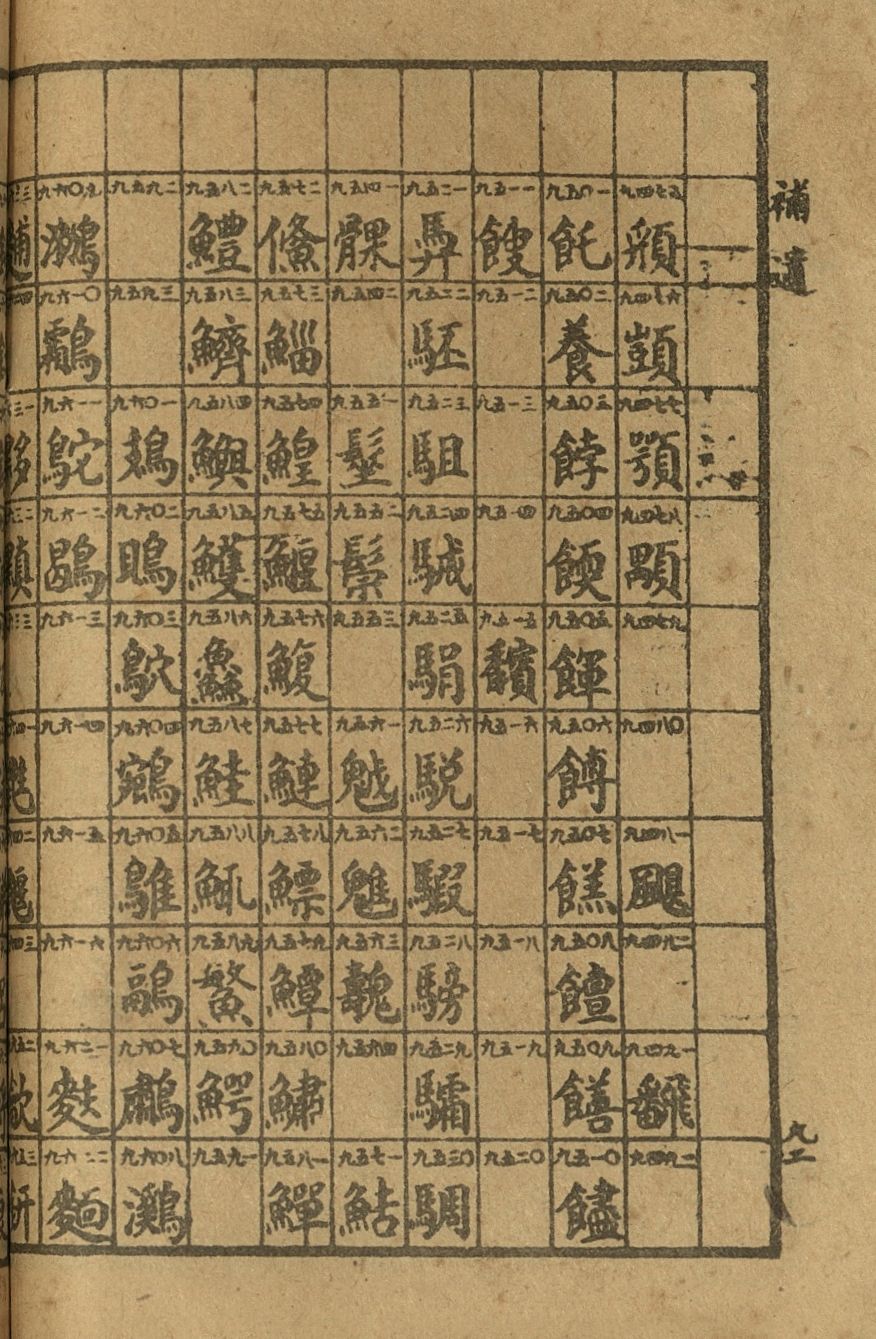 補遺
九四七五
九四七六 顗
九四七七 顎
九四七八 顒
九四七九
九四八〇
九四八一 颶
九四八二
九四九一 飜
九四九二
九五〇一 飥
九五〇二 養
九五〇三 餑
九五〇四 餪
九五〇五 餫
九五〇六 餺
九五〇七 餻
九五〇八 饘
九五〇九 饍
九五一〇
九五一一 餿
九五一二
九五一三
九五一四
九五一五 馪
九五一六
九五一七
九五一八
九五一九
九五二〇
九五二一
九五二二 駓
九五二三 駔
九五二四 駥
九五二五 駽
九五二六 駾
九五二七 騢
九五二八 騯
九五二九
九五三〇 騆
九五四一 髁
九五四二
九五五一 髽
九五五二 鬃
九五五三
九五六一 魆
九五六二 魋
九五六三 魗
九五六四
九五七一 鮚
九五七二 鯈
九五七三 鯔
九五七四 鰉
九五七五 鰋
九五七六 鰒
九五七七 鰱
九五七八 鰾
九五七九 鱏
九五八〇 鱐
九五八一 鱓
九五八二 鱧
九五八三 鱭
九五八四 鱮
九五八五 鱯
九五八六 鱻
九五八七 鮭
九五八八 鮿
九五八九 鰵
九五九〇 鰐
九五九一
九五九二
九五九三
九六〇一
九六〇二
九六〇三
九六〇四 鵷
九六〇五 鵻
九六〇六 鷊
九六〇七 鷫
九六〇八 鸂
九六〇九
九六一〇
九六一一 鴕
九六一二 鶡
九六一三
九六一四
九六一五
九六一六
九六二一 麩
九六二二